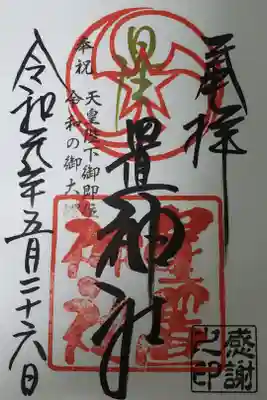 奉拝
星置神社
奉祝 天皇陛下御即位
令和の御大
令和元年五月二十六日
星置
神社
感謝
之印